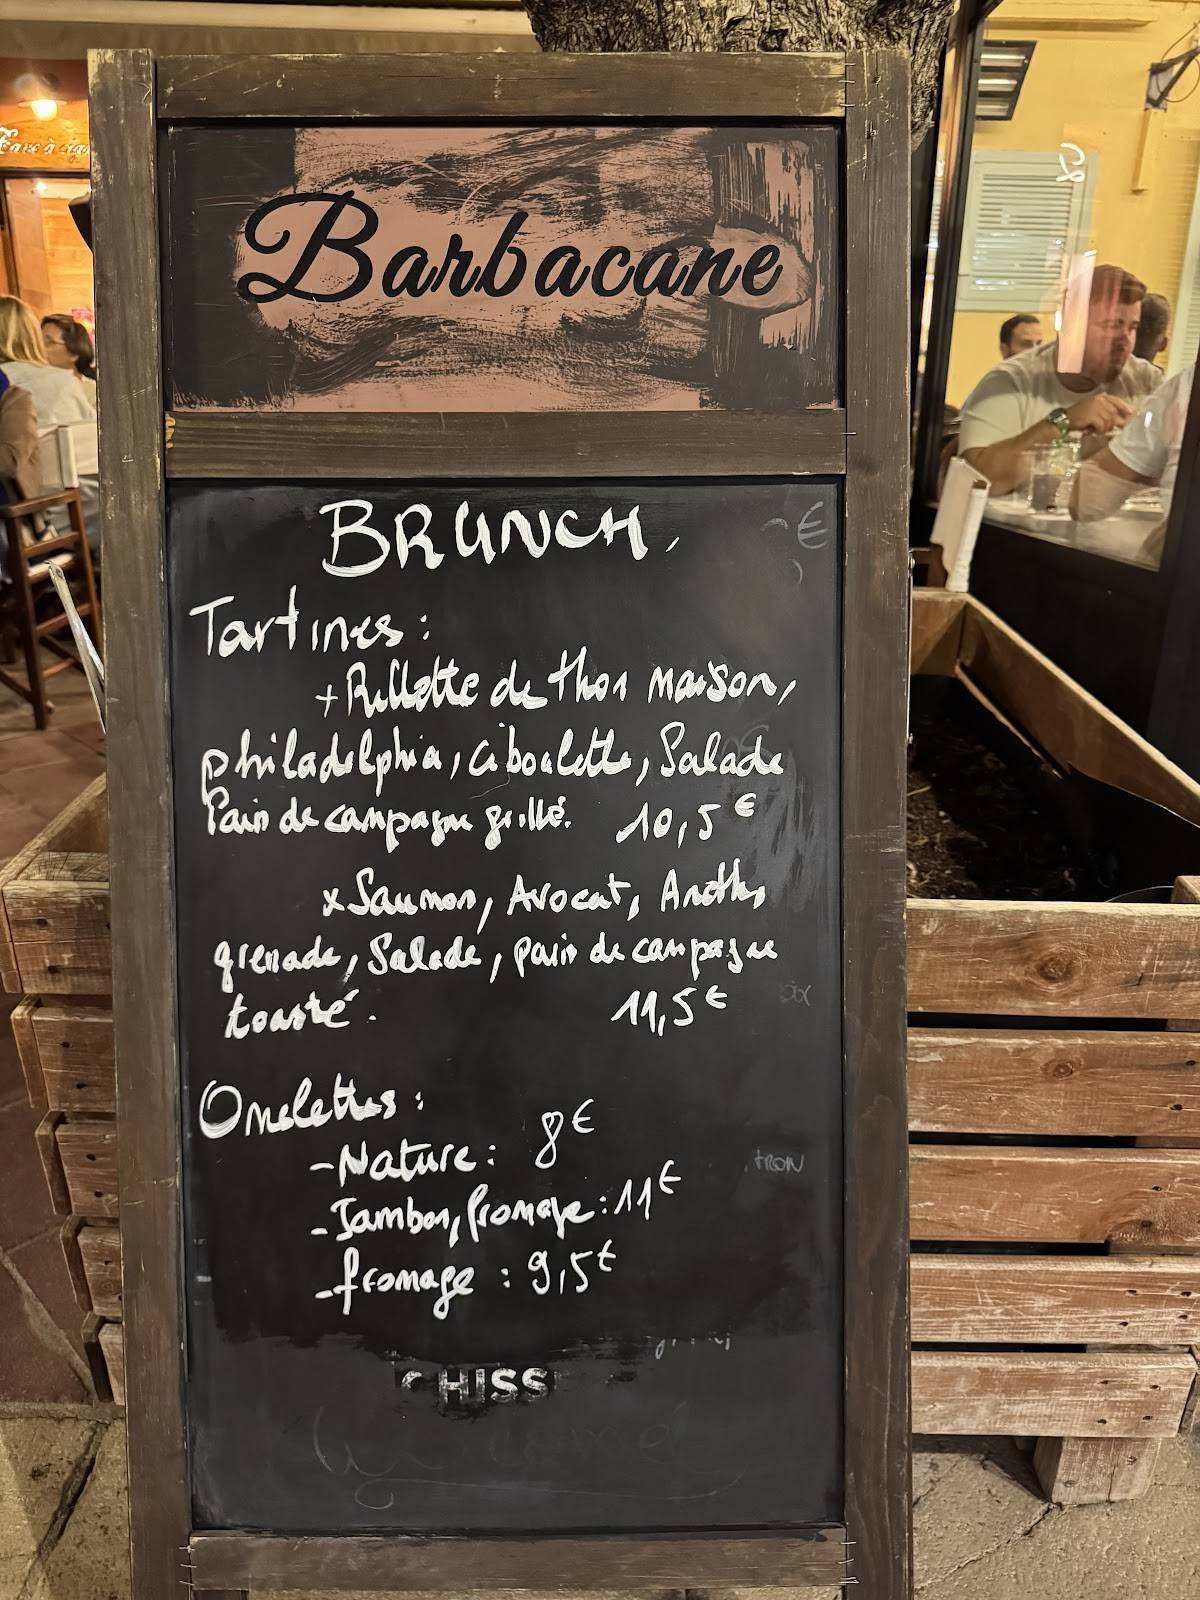 Barbacane
BRUNCH.
€
Tartines :
+ Rillette de thon maison,
philadelphia, ciboulette, Salade
Pain de campagne grillé. 10,5€
x Saumon, Avocat, Aneth,
grenade, Salade, pain de campagne
toasté. 11,5€
Omelettes :
- Nature : 8€
- Jambon, fromage : 11€
- fromage : 9,5€
TRON
CHISS